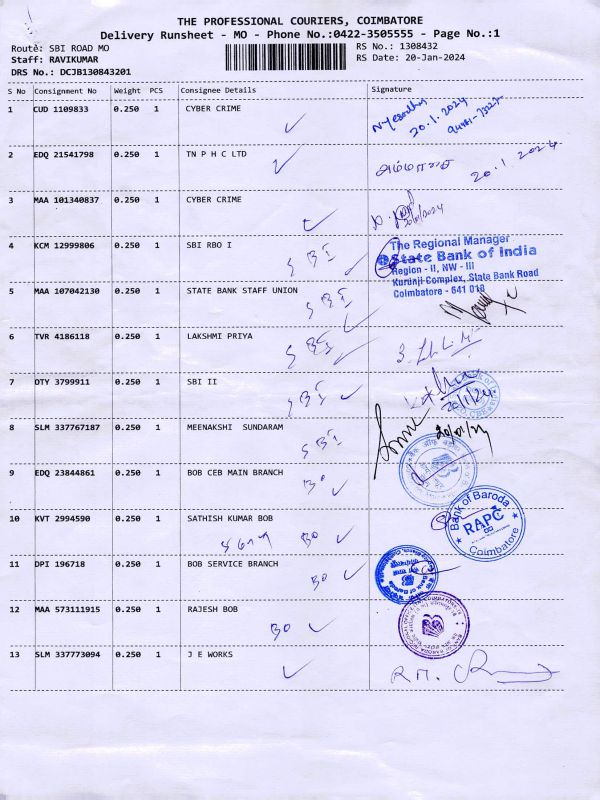 THE PROFESSIONAL COURIERS, COIMBATORE
Delivery Runsheet - MO - Phone No.:0422-3505555 - Page No.:1
Route: SBI ROAD MO
RS No.: 1308432
Staff: RAVIKUMAR
RS Date: 20-Jan-2024
DRS No.: DCJB130843201
S No Consignment No Weight PCS Consignee Details Signature
1 CUD 1109833 0.250 1 CYBER CRIME 20.1.2024
2 EDQ 21541798 0.250 1 TN P H C LTD அம்மாசை 20.1.2024
3 MAA 101340837 0.250 1 CYBER CRIME 20/1/2024
4 KCM 12999806 0.250 1 SBI RBO I SBI
The Regional Manager
State Bank of India
Region - II, NW - III
Kurinji Complex, State Bank Road
Coimbatore - 641 018
5 MAA 107042130 0.250 1 STATE BANK STAFF UNION SBI
6 TVR 4186118 0.250 1 LAKSHMI PRIYA SBI
7 OTY 3799911 0.250 1 SBI II SBI 20/1/24
8 SLM 337767187 0.250 1 MEENAKSHI SUNDARAM SBI 20/01/24
9 EDQ 23844861 0.250 1 BOB CEB MAIN BRANCH BO
10 KVT 2994590 0.250 1 SATHISH KUMAR BOB BO
Bank of Baroda
RAPC
Coimbatore
11 DPI 196718 0.250 1 BOB SERVICE BRANCH BO
12 MAA 573111915 0.250 1 RAJESH BOB BO
13 SLM 337773094 0.250 1 J E WORKS R.M.